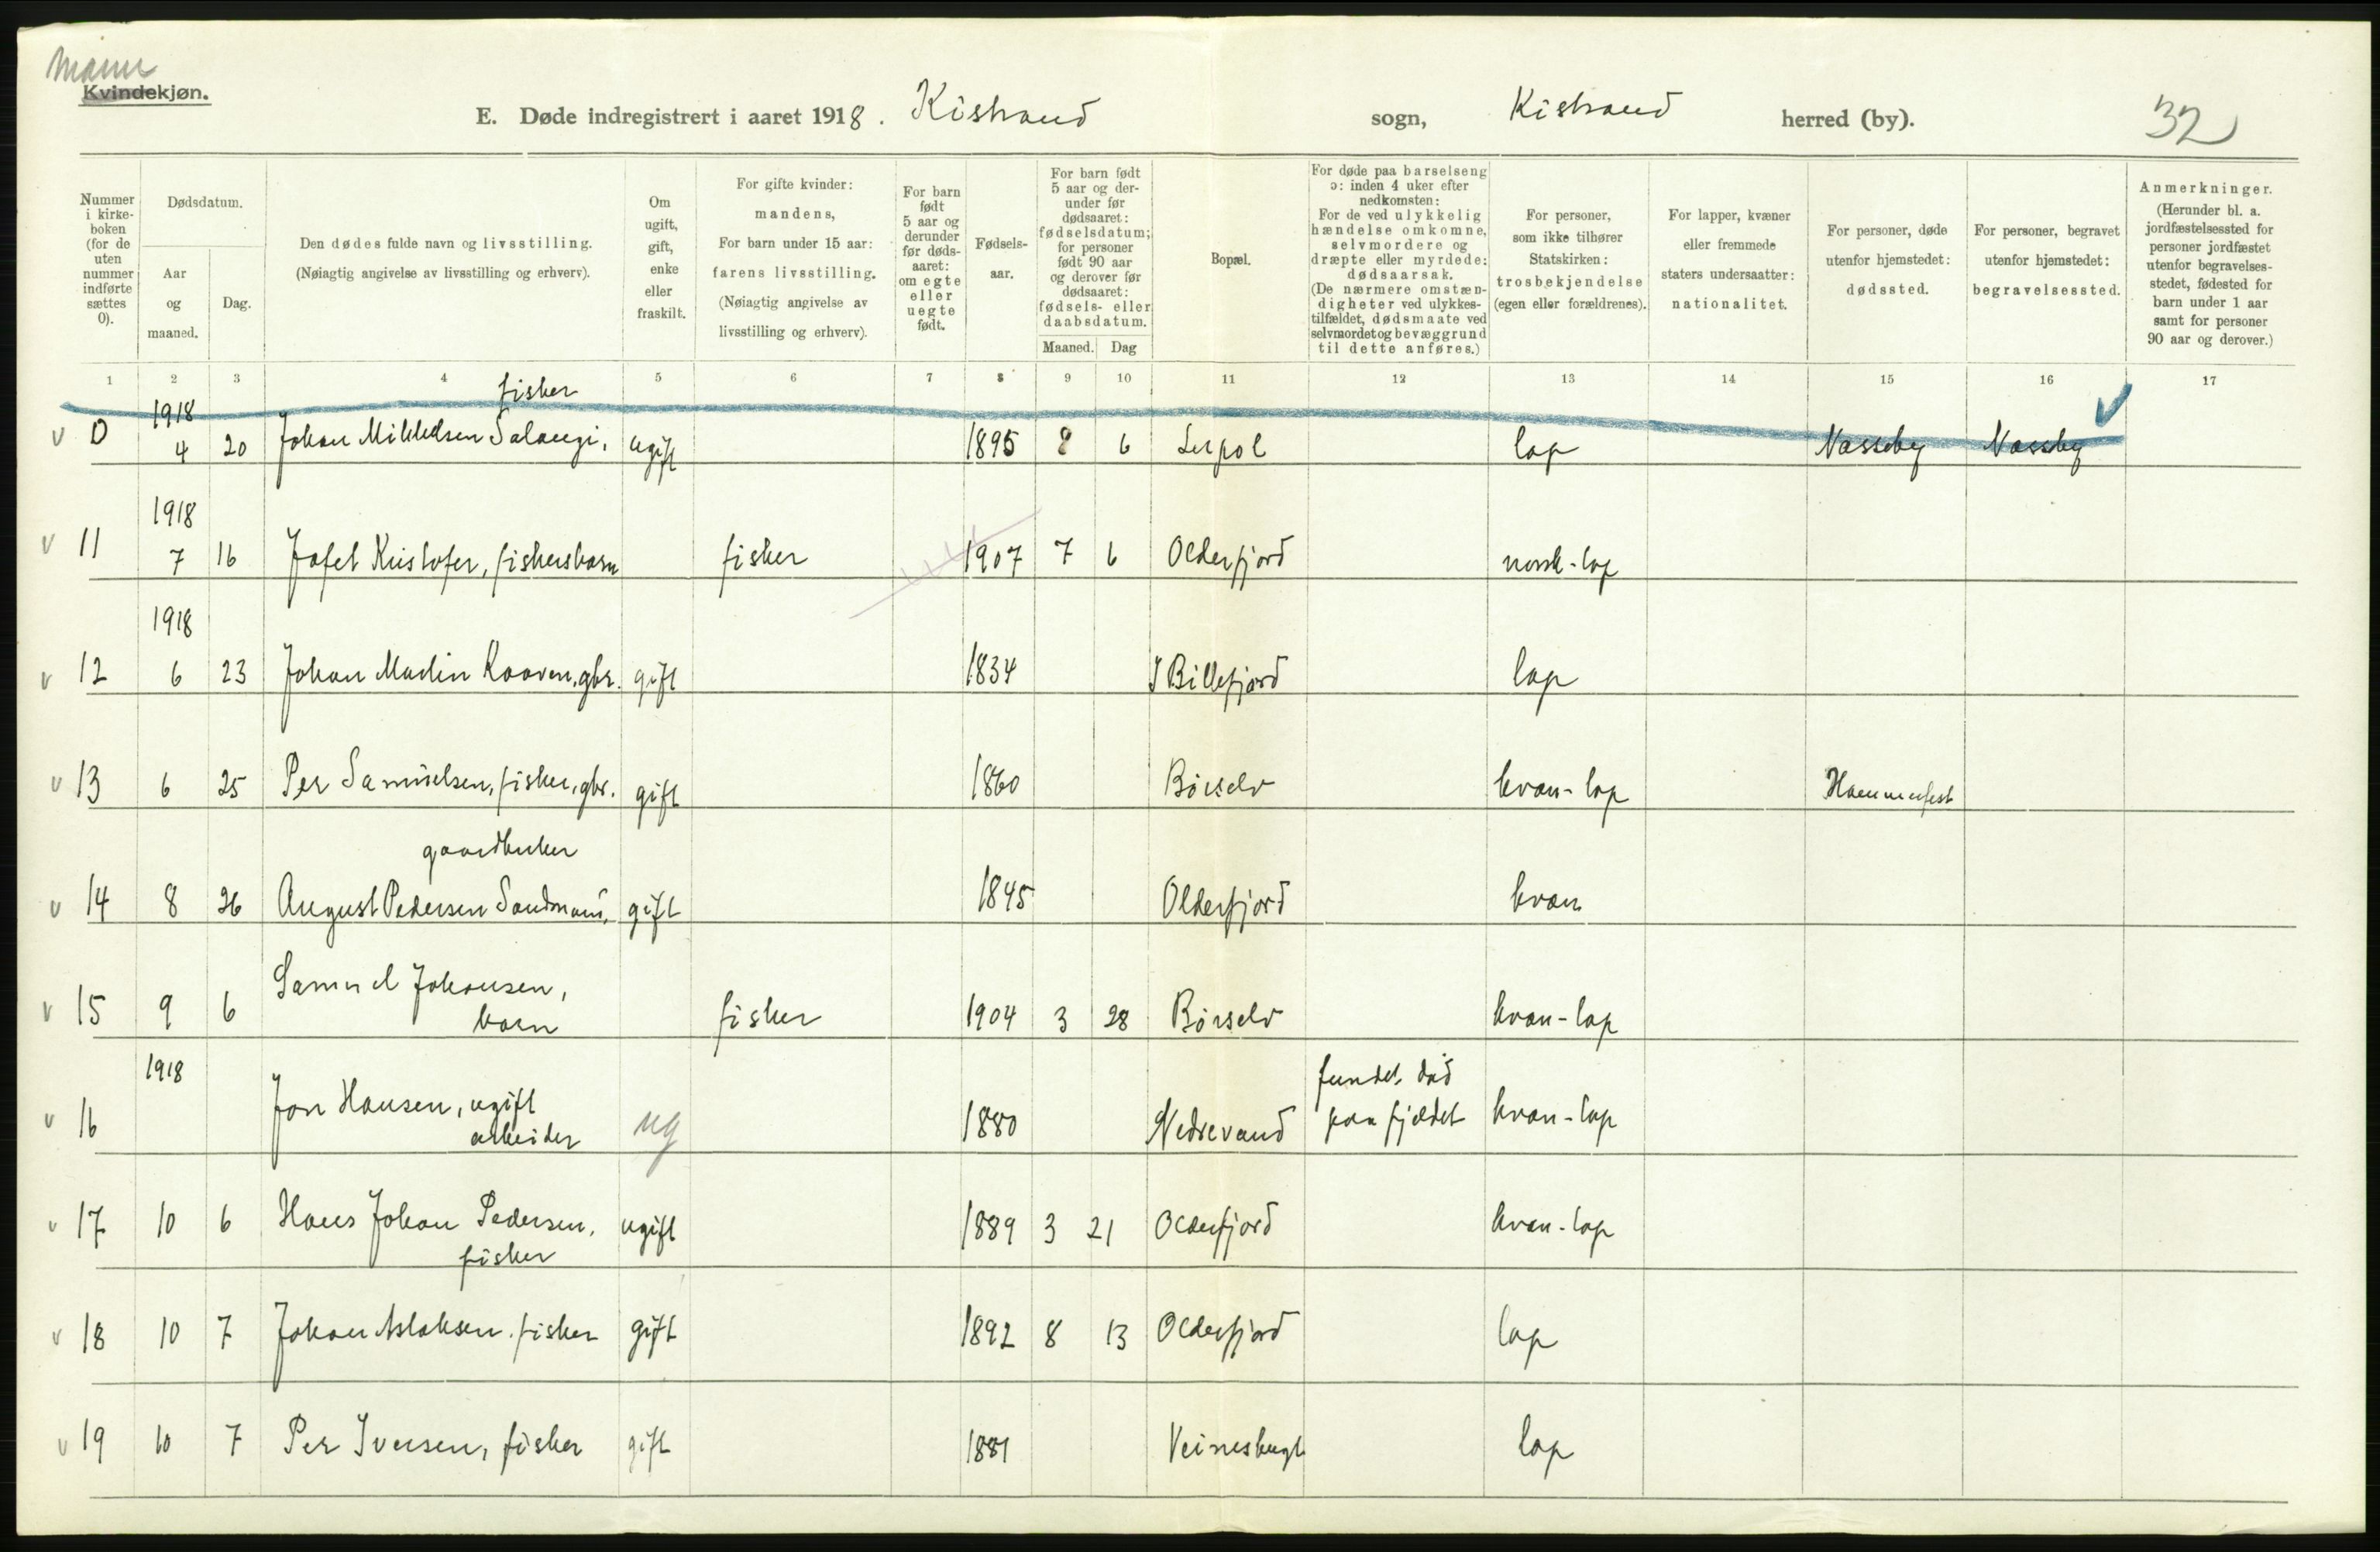 Mann
Kvindekjøn.
E. Døde indregistrert i aaret 1918. Kistrand sogn, Kistrand herred (by). 32
Nummer i kirke-boken (for de uten nummer indførte sættes 0).
Dødsdatum.
Aar og maaned.
Dag.
Den dødes fulde navn og livsstilling.
(Nøiagtig angivelse av livsstilling og erhverv).
Om ugift, gift, enke eller fraskilt.
For gifte kvinder: mandens,
For barn under 15 aar: farens livsstilling.
(Nøiagtig angivelse av livsstilling og erhverv).
For barn født 5 aar og derunder før døds-aaret: om egte eller uegte født.
Fødsels-aar.
For barn født 5 aar og der-under før dødsaaret: fødselsdatum; for personer født 90 aar og derover før dødsaaret: fødsels- eller daabsdatum.
Maaned. Dag
Bopæl.
For døde paa barselseng ɔ: inden 4 uker efter nedkomsten:
For de ved ulykkelig hændelse omkomne, selvmordere og dræpte eller myrdede: dødsaarsak.
(De nærmere omstæn-digheter ved ulykkes-tilfældet, dødsmaate ved selvmordet og bevæggrund til dette anføres.)
For personer, som ikke tilhører Statskirken: trosbekjendelse (egen eller forældrenes).
For lapper, kvæner eller fremmede staters undersaatter: nationalitet.
For personer, døde utenfor hjemstedet: dødssted.
For personer, begravet utenfor hjemstedet: begravelsessted.
Anmerkninger.
(Herunder bl. a. jordfæstelsessted for personer jordfæstet utenfor begravelses-stedet, fødested for barn under 1 aar samt for personer 90 aar og derover.)
1 2 3 4 5 6 7 8 9 10 11 12 13 14 15 16 17
fisker
1918
v 0 4 20 Johan Mikkelsen Salangi, ugift 1895 8 6 Lerpol lap Næsseby Næsseby v
1918
v 11 7 16 Jafet Kristofer, fiskersbarn fisker 1907 7 6 Olderfjord norsk-lap
1918
v 12 6 23 Johan Martin Kaaven, gbr. gift 1834 I Billefjord lap
v 13 6 25 Per Samuelsen, fisker, gbr. gift 1860 Børselv kvæn-lap Hammerfest
gaardbruker
v 14 8 26 August Pedersen Sandmann, gift 1845 Olderfjord kvæn
v 15 9 6 Samuel Johansen, barn fisker 1904 3 28 Børselv kvæn-lap
1918
v 16 Jon Hansen, ugift arbeider ug 1880 Nedrevand fundet død paa fjeldet kvæn-lap
v 17 10 6 Hans Johan Pedersen, fisker ugift 1889 3 21 Olderfjord kvæn-lap
v 18 10 7 Johan Aslaksen. fisker gift 1892 8 13 Olderfjord lap
v 19 10 7 Per Iversen, fisker gift 1881 Veinesbugt lap